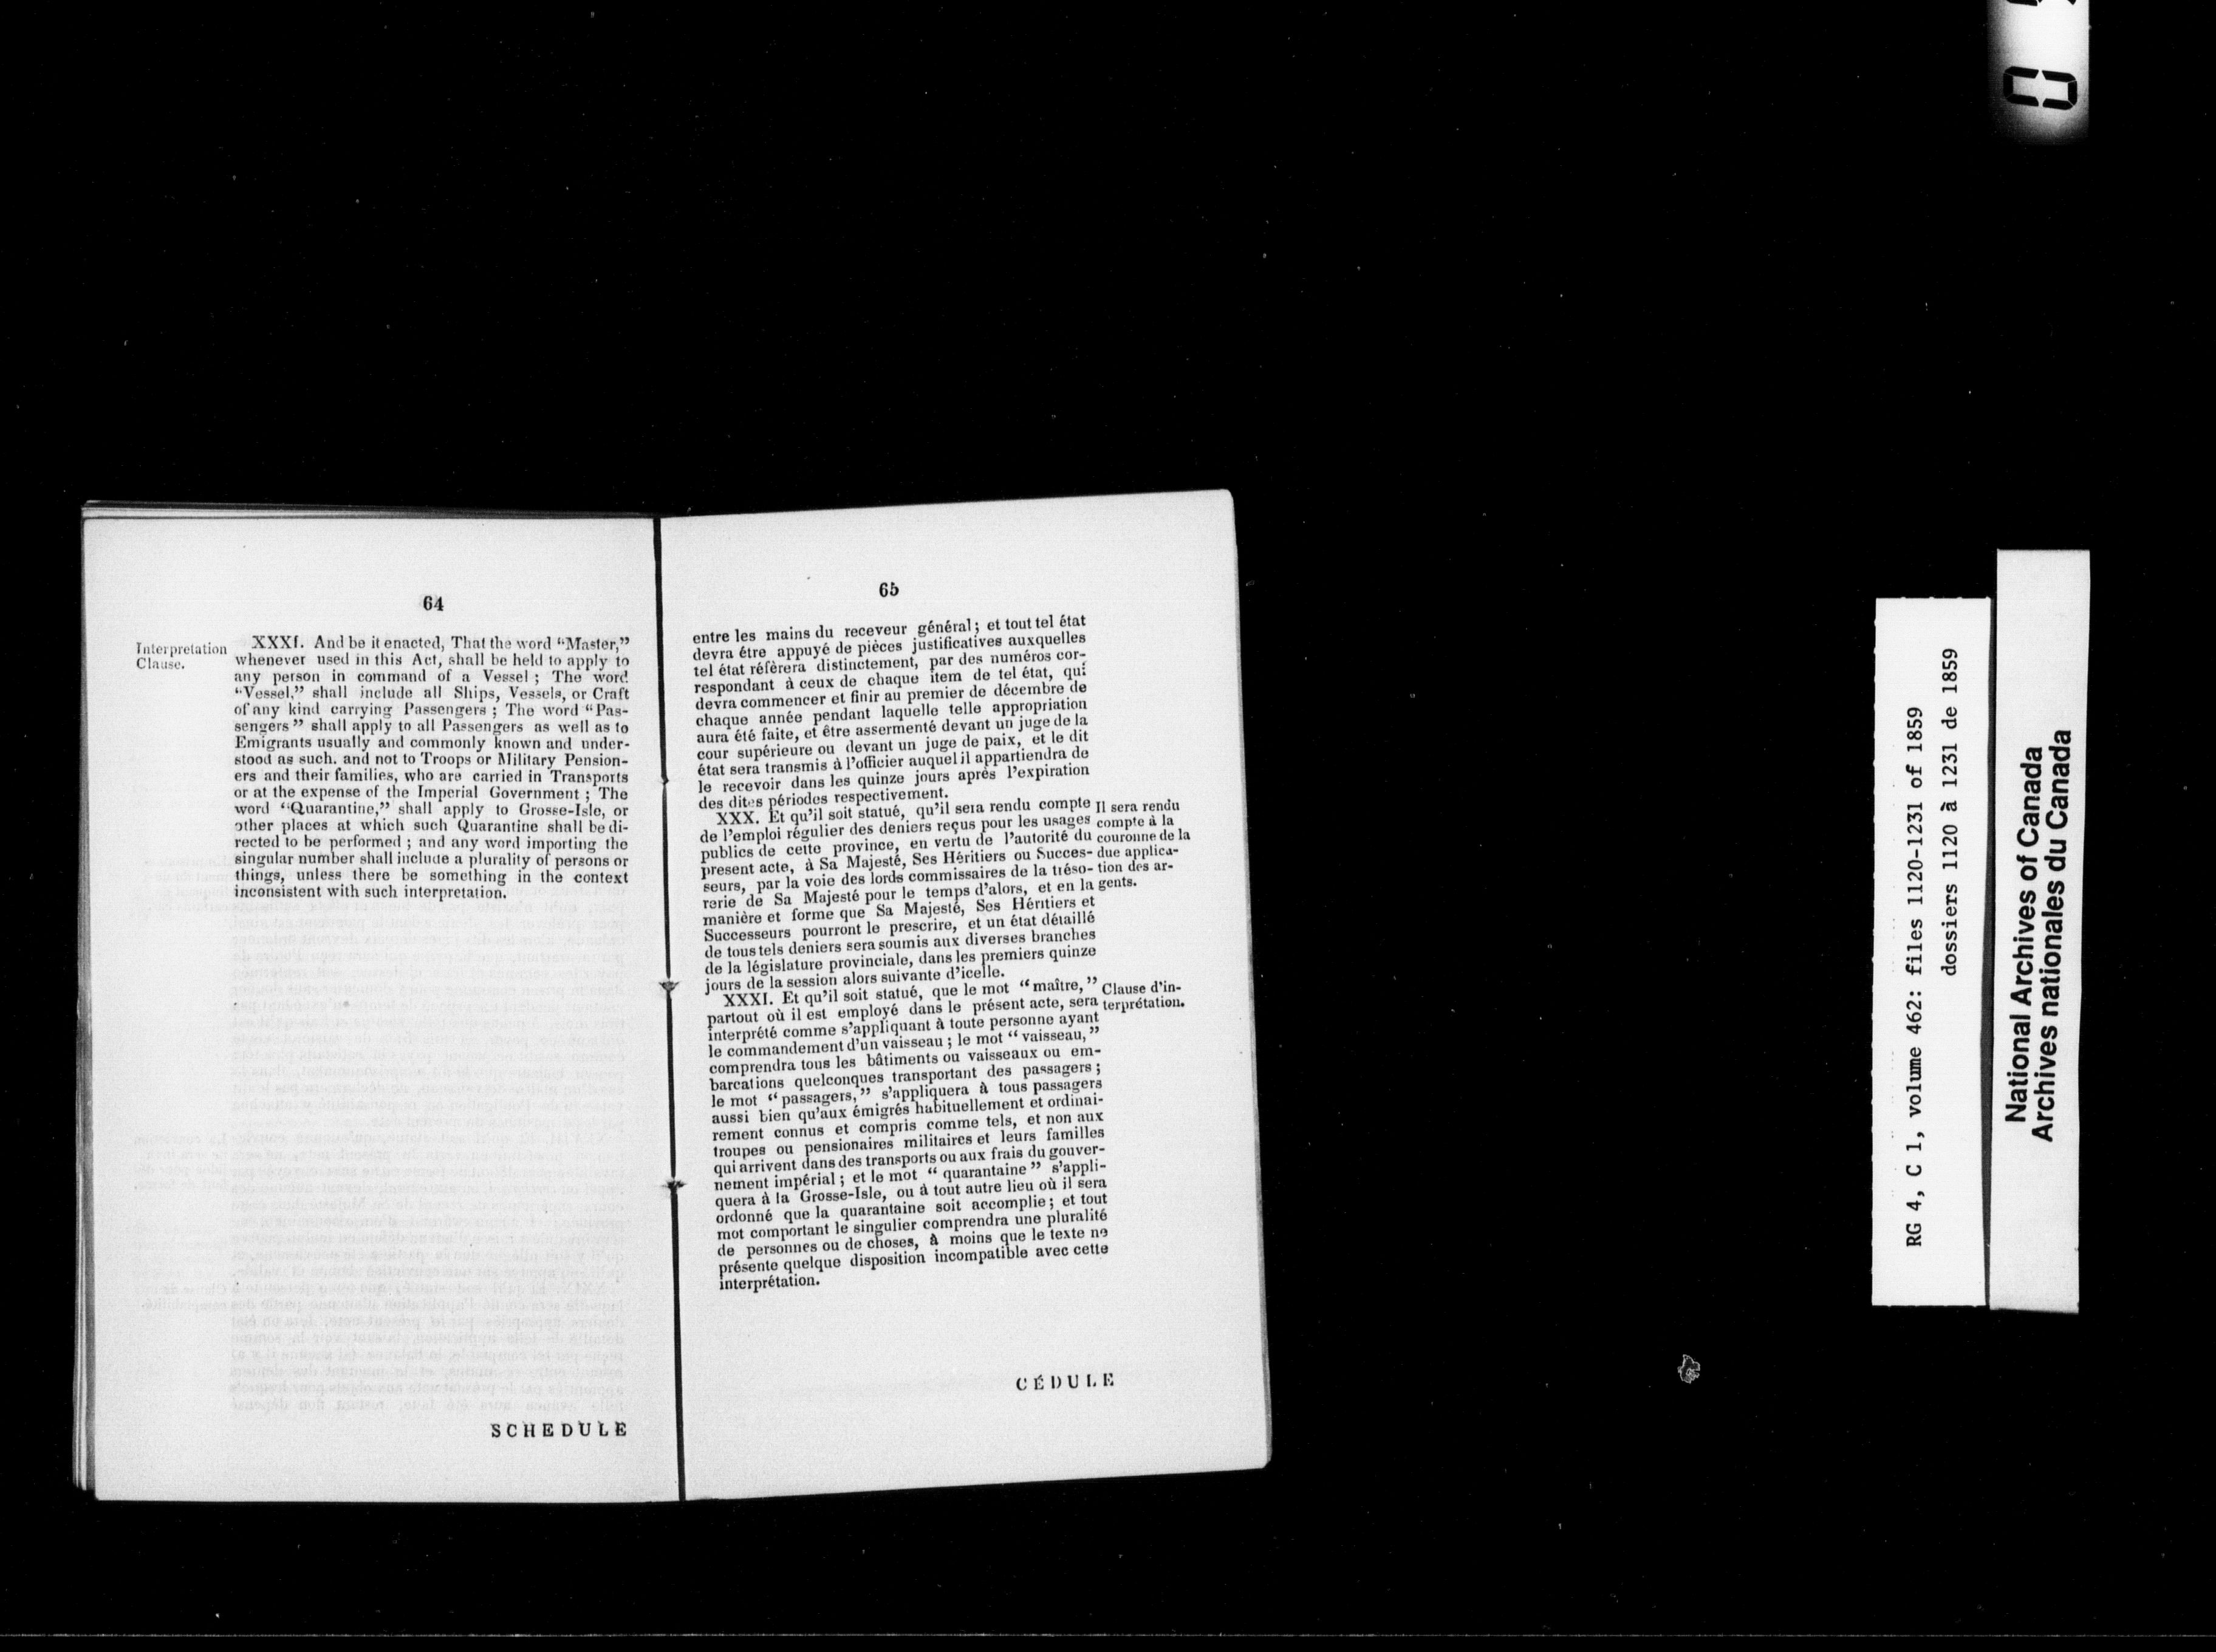 64
Interpretation
Clause.
XXXI. And be it enacted, That the word "Master,"
whenever used in this Act, shall be held to apply to
any person in command of a Vessel ; The word
"Vessel," shall include all Ships, Vessels, or Craft
of any kind carrying Passengers ; The word "Pas-
sengers" shall apply to all Passengers as well as to
Emigrants usually and commonly known and under-
stood as such. and not to Troops or Military Pension-
ers and their families, who are carried in Transports
or at the expense of the Imperial Government ; The
word "Quarantine," shall apply to Grosse-Isle, or
other places at which such Quarantine shall be di-
rected to be performed ; and any word importing the
singular number shall include a plurality of persons or
things, unless there be something in the context
inconsistent with such interpretation.
SCHEDULE
65
entre les mains du receveur général ; et tout tel état
devra étre appuyé de pièces justificatives auxquelles
tel état réfèrera distinctement, par des numéros cor-
respondant à ceux de chaque item de tel état, qui
devra commencer et finir au premier de décembre de
chaque année pendant laquelle telle appropriation
aura été faite, et être assermenté devant un juge de la
cour supérieure ou devant un juge de paix, et le dit
état sera transmis à l'officier auquel il appartiendra de
le recevoir dans les quinze jours après l'expiration
des dites périodes respectivement.
XXX. Et qu'il soit statué, qu'il sera rendu compte
de l'emploi régulier des deniers reçus pour les usages
publics de cette province, en vertu de l'autorité du
present acte, à Sa Majesté, Ses Héritiers ou Succes-
seurs, par la voie des lords commissaires de la tréso-
rerie de Sa Majesté pour le temps d'alors, et en la
manière et forme que Sa Majesté, Ses Héritiers et
Successeurs pourront le prescrire, et un état détaillé
de tous tels deniers sera soumis aux diverses branches
de la législature provinciale, dans les premiers quinze
jours de la session alors suivante d'icelle.
Il sera rendu
compte à la
couronne de la
due applica-
tion des ar-
gents.
XXXI. Et qu'il soit statué, que le mot "maître,"
partout où il est employé dans le présent acte, sera
interprété comme s'appliquant à toute personne ayant
le commandement d'un vaisseau ; le mot "vaisseau,"
comprendra tous les bâtiments ou vaisseaux ou em-
barcations quelconques transportant des passagers ;
le mot "passagers," s'appliquera à tous passagers
aussi bien qu'aux émigrés habituellement et ordinai-
rement connus et compris comme tels, et non aux
troupes ou pensionaires militaires et leurs familles
qui arrivent dans des transports ou aux frais du gouver-
nement impérial ; et le mot "quarantaine" s'appli-
quera à la Grosse-Isle, ou à tout autre lieu où il sera
ordonné que la quarantaine soit accomplie ; et tout
mot comportant le singulier comprendra une pluralité
de personnes ou de choses, à moins que le texte ne
présente quelque disposition incompatible avec cette
interprétation.
Clause d'in-
terprétation.
CÉDULE
RG 4, C 1, volume 462: files 1120-1231 of 1859
dossiers 1120 à 1231 de 1859
National Archives of Canada
Archives nationales du Canada